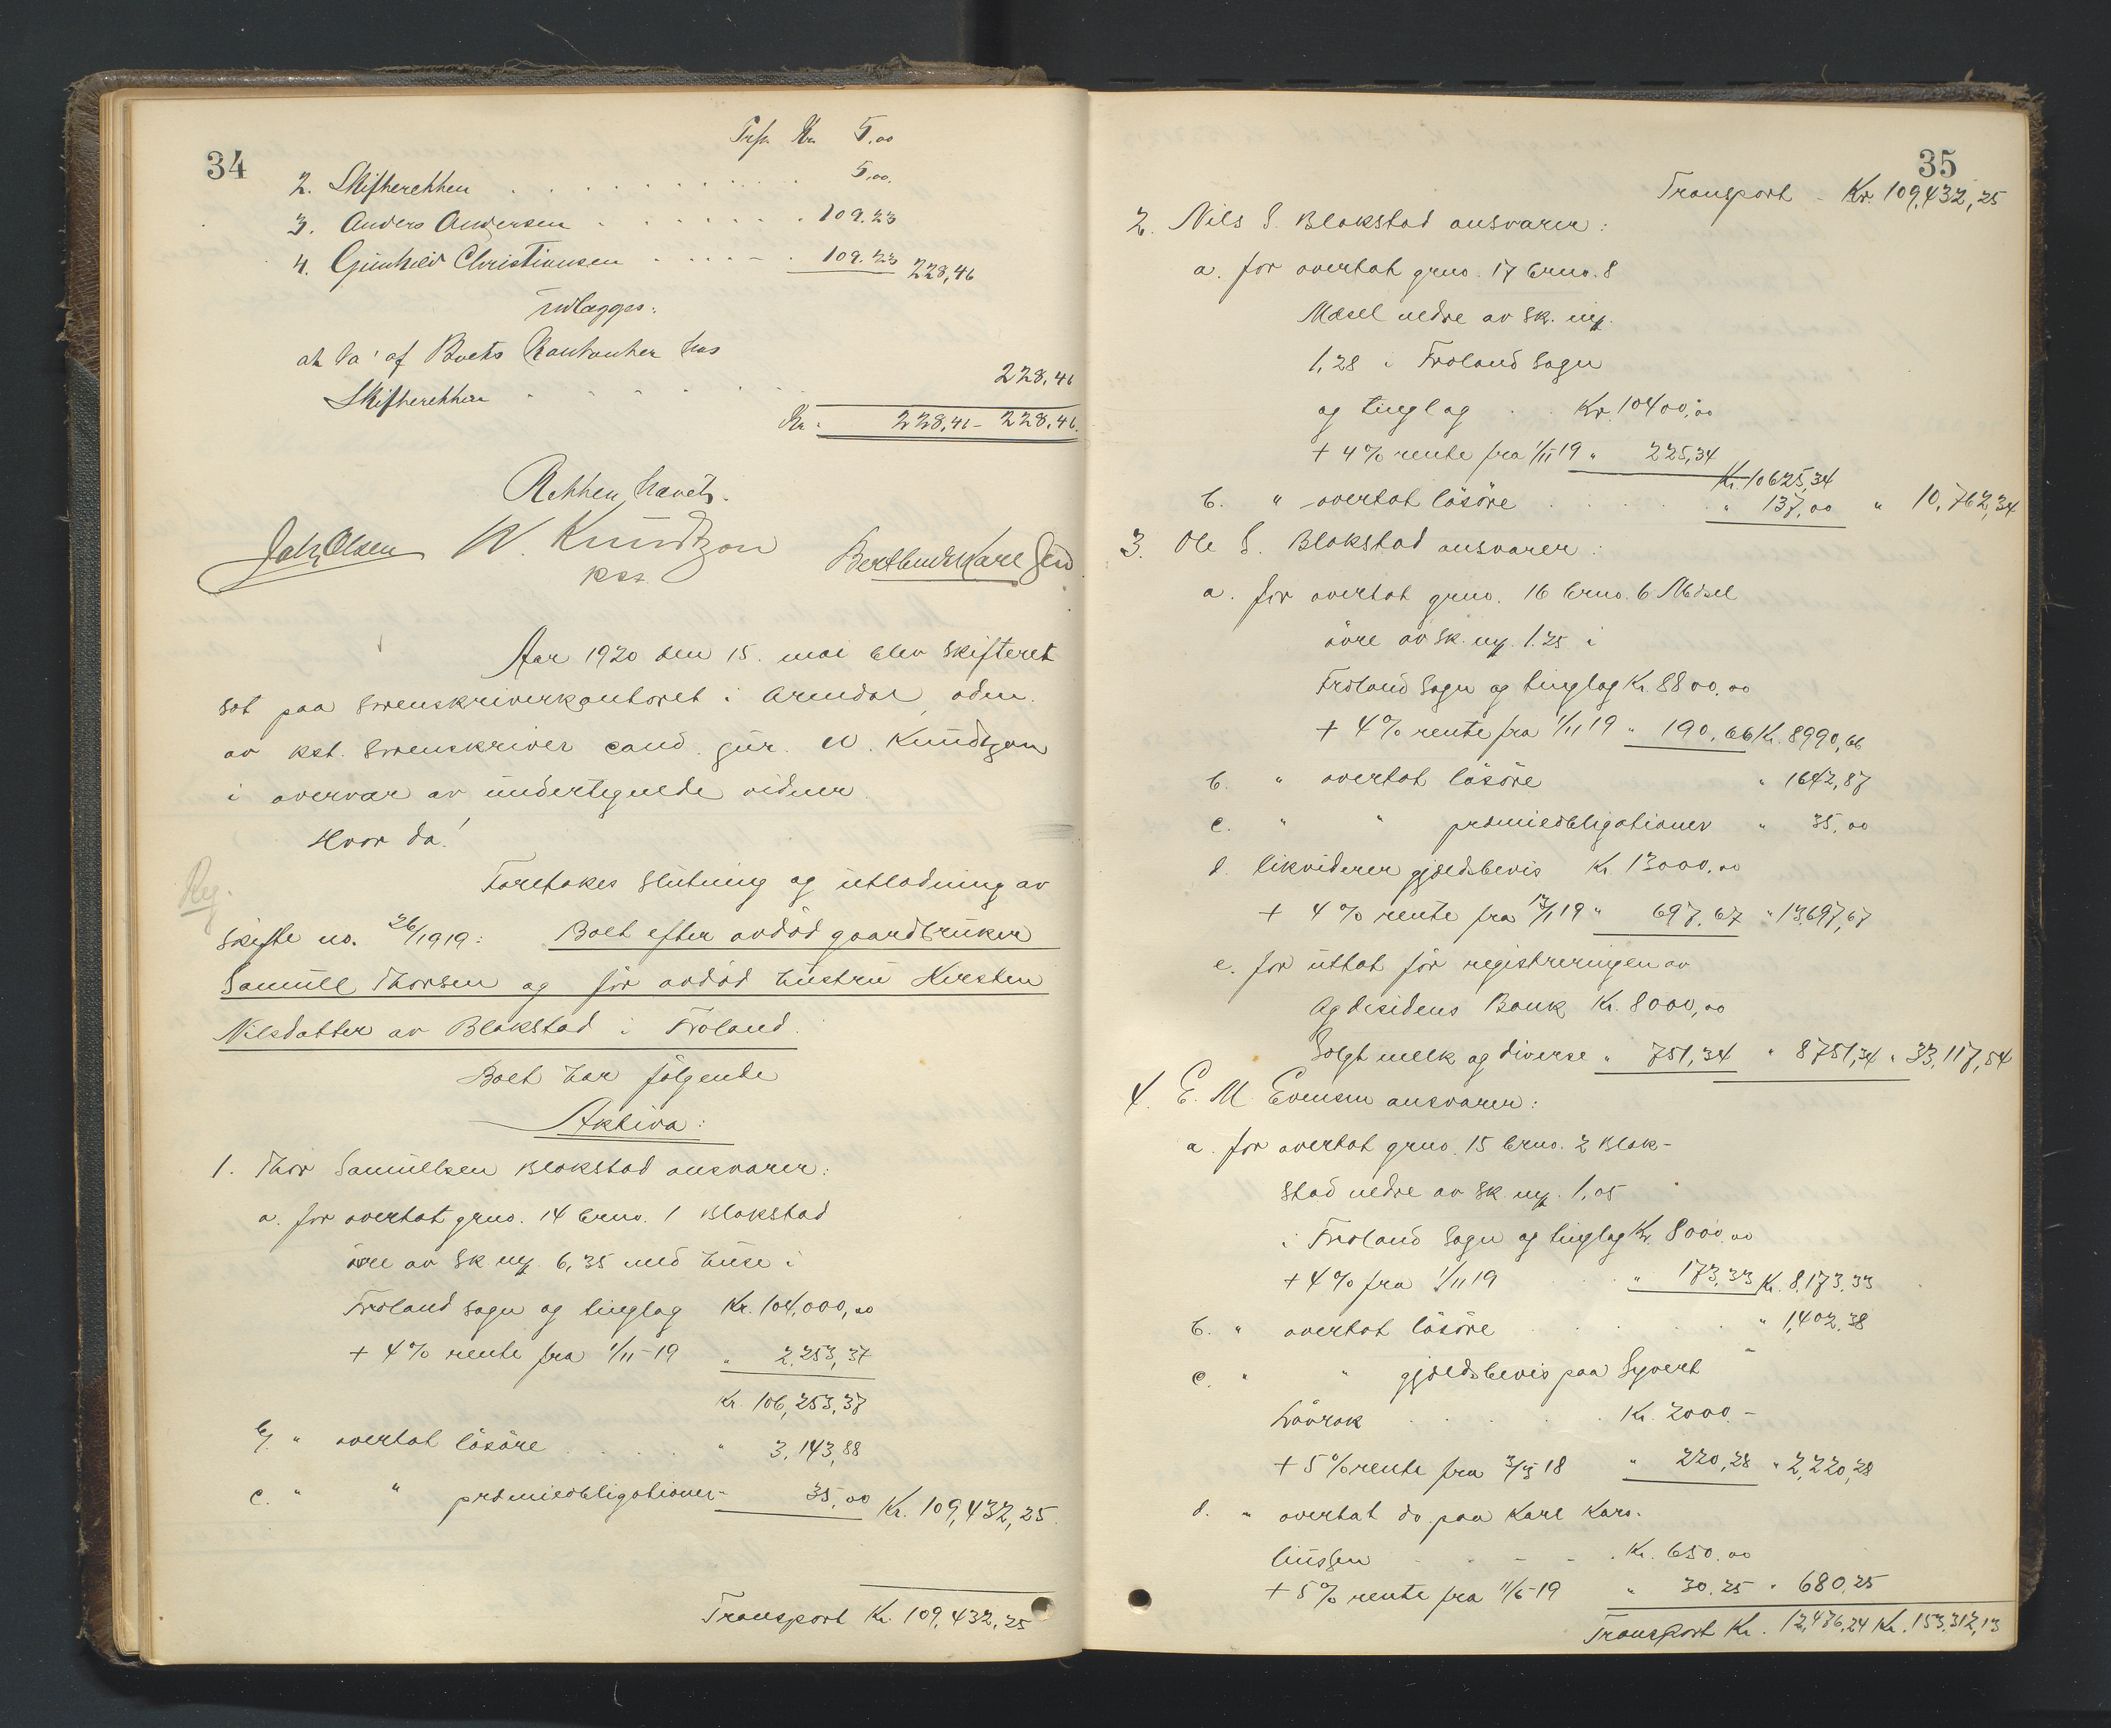 34
Trsp. Kr. 5,00
2. Skifteretten . . . . . . . . . . . 5,00.
3. Anders Andersen . . . . . . . 109.23
4. Gunhild Christiansen . . . . . 109.23 228,46
Udlægges:
at ta' af Boets Kontanter hos
Skifteretten . . . . . . 228,46
Kr. 228,46 - 228,46.
Retten hævet.
Joh. Olsen W. Knudtzon
kst.
Aar 1920 den 15. mai blev skifteret
sat paa sorenskriverkontoret i Arendal, adm.
av kst. sorenskriver cand. jur. W. Knudtzon
i overvær av undertegnede vidner.
Hvor da!
Reg.
Foretokes slutning og utlodning av
skifte no. 26/1919: Boet efter avdød gaardbruker
Samuel Thorsen og før avdød hustru Kirsten
Nilsdatter av Blakstad i Froland.
Boet har følgende
Aktiva:
1. Thor Samuelsen Blakstad ansvarer:
a. for overtat grno. 14 brno. 1 Blakstad
øvre av sk. my. 6,35 med huse i
Froland sogn og tinglag Kr. 104,000,00
+ 4% rente fra 1/11-19 " 2,253,37
Kr. 106,253,37
b. " overtat løsøre . . . . " 3,143,88
c. " " præmieobligationer - 35,00 Kr. 109,432,25.
Transport Kr. 109,432,25
35
Transport - Kr. 109,432,25
2. Nils S. Blakstad ansvarer:
a. for overtat grno. 17 brno. 8
Mæsel nedre av sk. my.
1,28 i Froland sogn
og tinglag . . Kr. 10400,00
+ 4% rente fra 1/11 19 " 225,34
Kr. 10625,34
b. " overtat løsøre . . . . . " 137,00 " 10,762,34
3. Ole S. Blakstad ansvarer:
a. for overtat grno. 16 brno. 6 Mæsel
øvre av sk. my. 1.25 i
Froland sogn og tinglag Kr. 8800.00
+ 4% rente fra 1/11 19 " 190,66 Kr. 8990,66
b. " overtat løsøre " 1642,87
c. " " præmieobligationer " 35,00
d. likviderer gjældsbevis Kr. 13000.00
+ 4% rente fra 13/1 19 " 697,67 " 13697,67
e. for uttat før registreringen av
Agdesidens Bank Kr. 8000,00
Solgt melk og diverse " 751,34 " 8751,34 " 33,117,54
4. E. M. Evensen ansvarer:
a. for overtat grno. 15 brno. 2 Blak-
stad nedre av sk. my. 1,05
i Froland sogn og tinglag Kr. 8000.00
+ 4% fra 1/11 19 . . " 173,33 Kr. 8,173,33
b. " overtat løsøre . . . . . " 1,402,38
c. " " gjældsbevis paa Syvert
Løvrak . . . . . Kr. 2000 -
+ 5% rente fra 18 " 220,28 " 2,220,28
d. " overtat do. paa Karl Karo-
liussen - - - . Kr. 650.00
+ 5% rente fra 11/6-19 " 30.25 " 680,25
Transport Kr. 12,476,24 Kr. 153,312,13